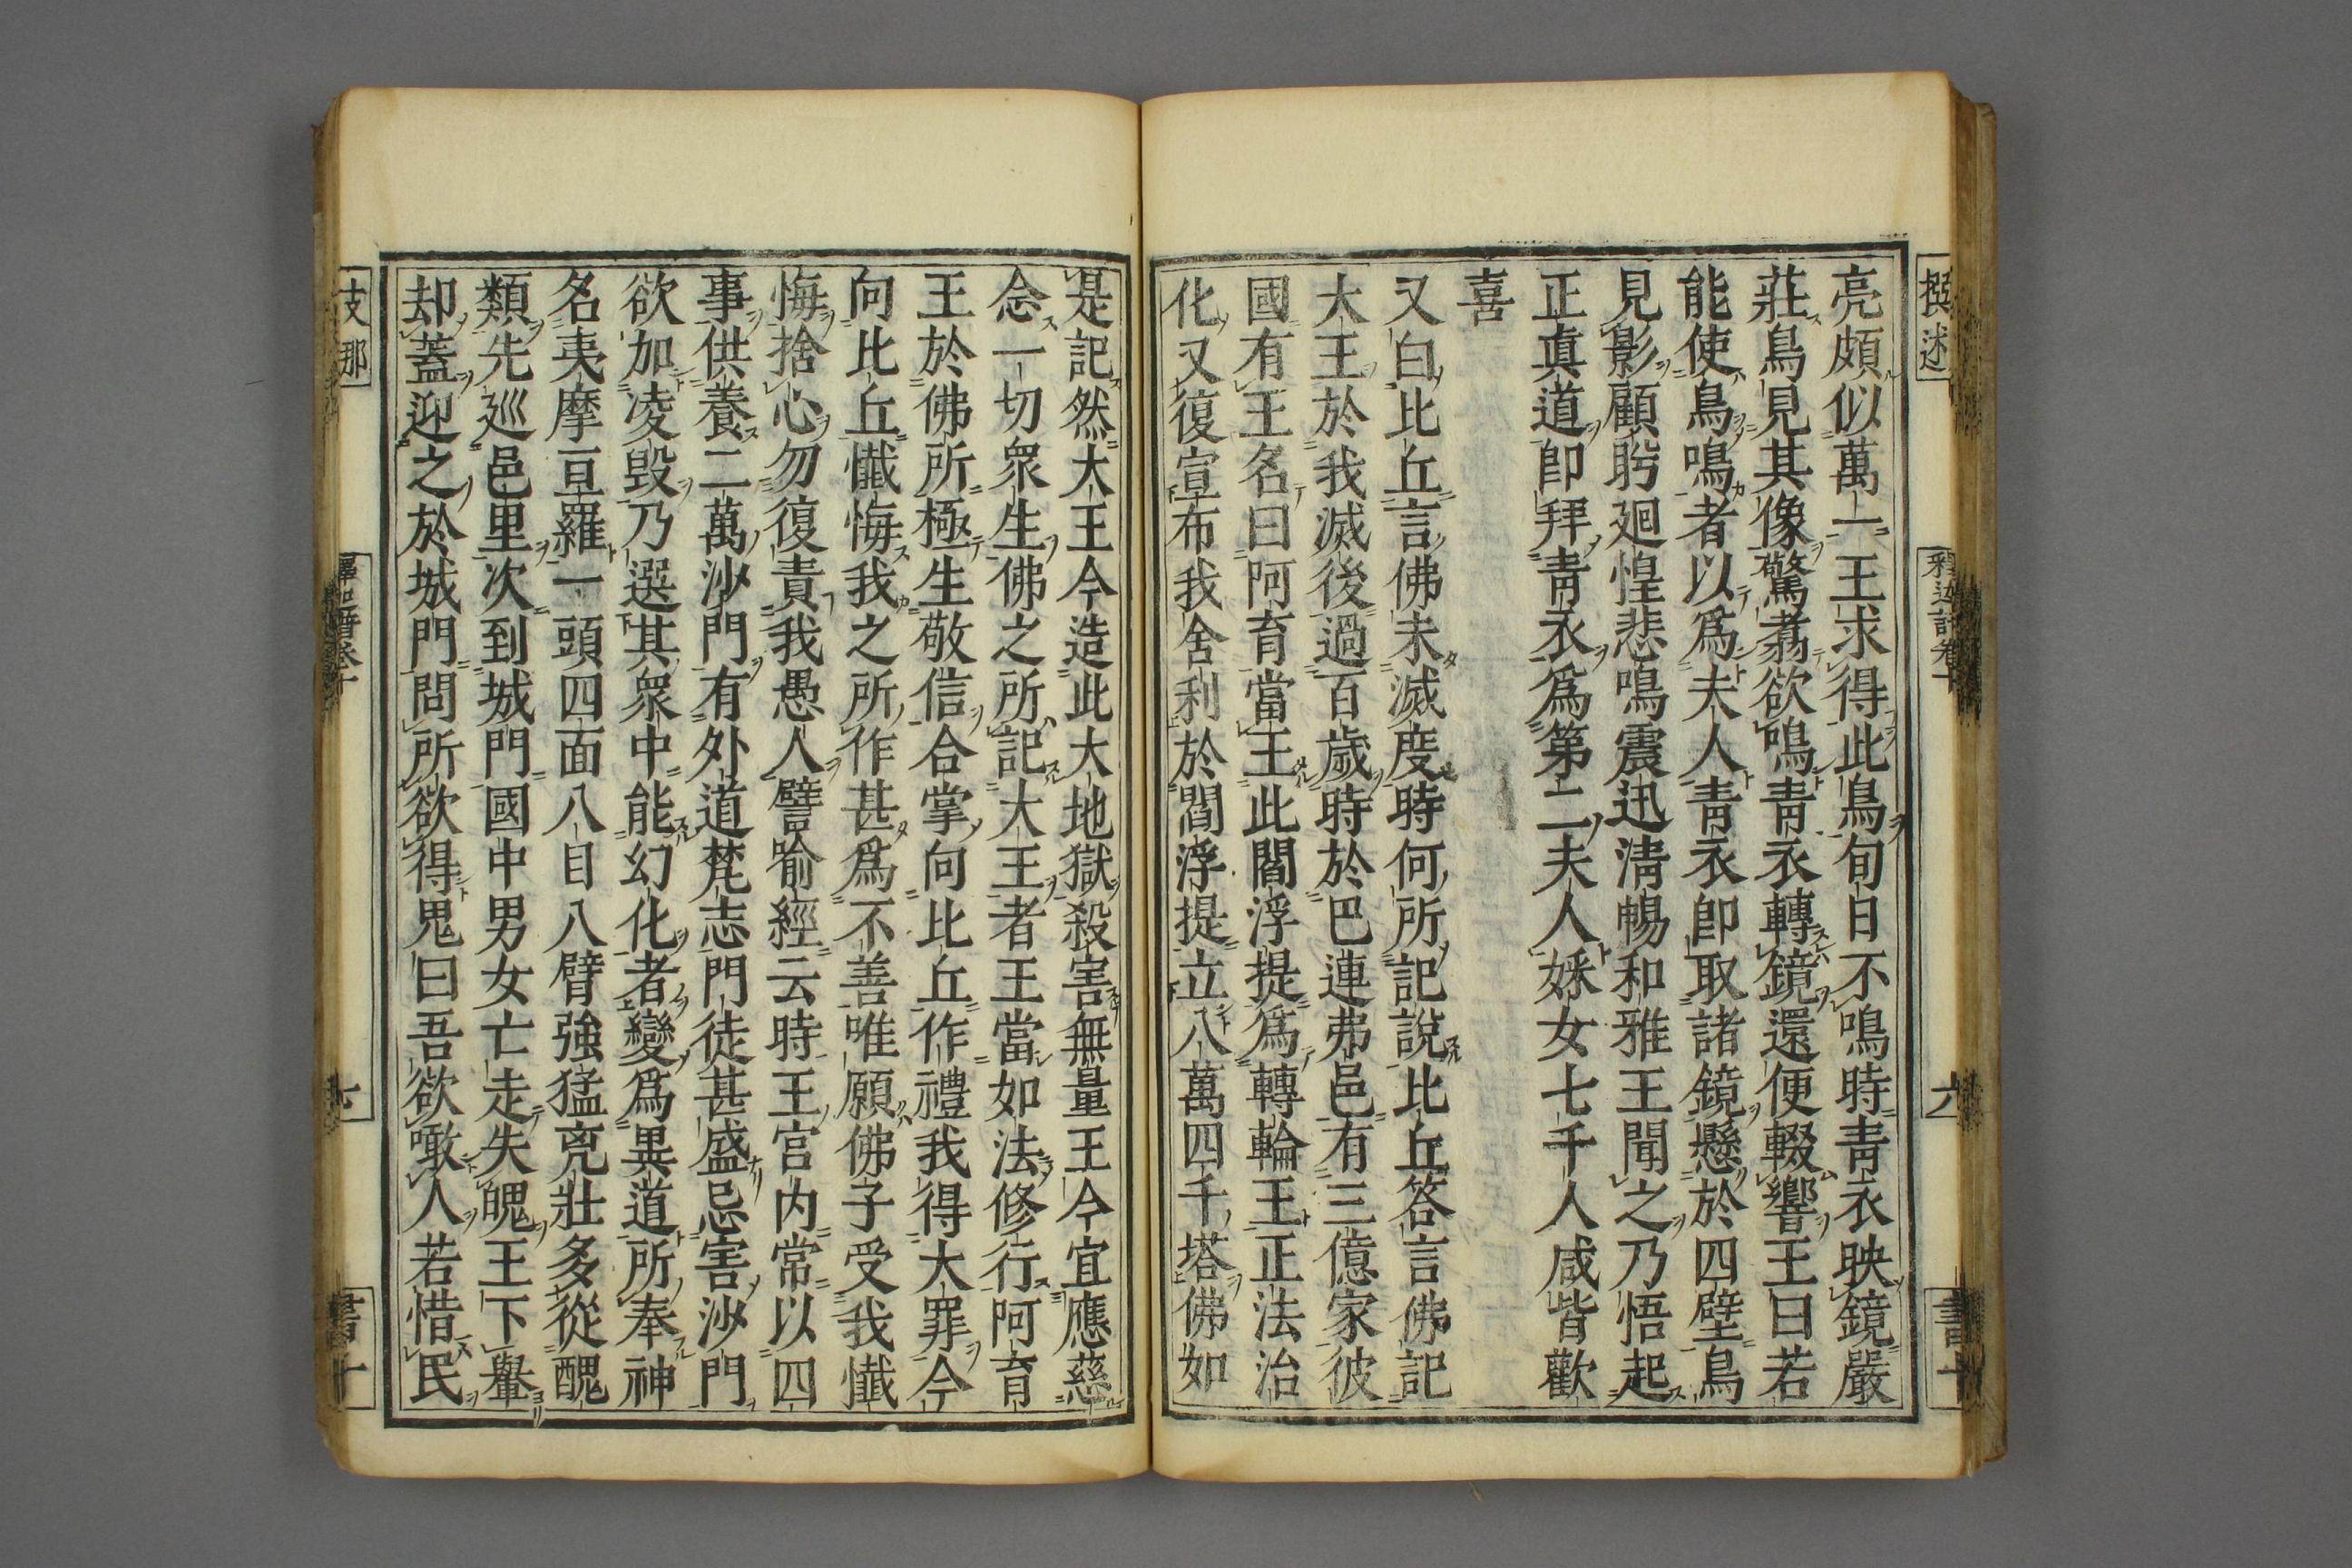 撰述
釋迦譜卷十
六
書十
亮頗似萬一王求得此鳥旬日不鳴時靑衣映鏡嚴
莊鳥見其像驚翥欲鳴靑衣轉鏡還便輟響王曰若
能使鳥鳴者以爲夫人靑衣卽取諸鏡懸於四壁鳥
見影顧眄廻惶悲鳴震迅淸暢和雅王聞之乃悟起
正眞道卽拜靑衣爲第二夫人婇女七千人咸皆歡
喜
又白比丘言佛未滅度時何所記說比丘答言佛記
大王於我滅後過百歲時於巴連弗邑有三億家彼
國有王名曰阿育當王此閻浮提爲轉輪王正法治
化又復宣布我舍利於閻浮提立八萬四千塔佛如
是記然大王今造此大地獄殺害無量王今宜應慈
念一切衆生佛之所記大王者王當如法修行阿育
王於佛所極生敬信合掌向比丘作禮我得大罪今
向比丘懺悔我之所作甚爲不善唯願佛子受我懺
悔捨心勿復責我愚人譬喩經云時王宮内常以四
事供養二萬沙門有外道梵志門徒甚盛忌害沙門
欲加凌毀乃選其衆中能幻化者變爲異道所奉神
名夷摩亘羅一頭四面八目八臂強猛兇壯多從醜
類先巡邑里次到城門國中男女亡走失魄王下轝
却蓋迎之於城門問所欲得鬼曰吾欲噉人若惜民
支那
七
書十